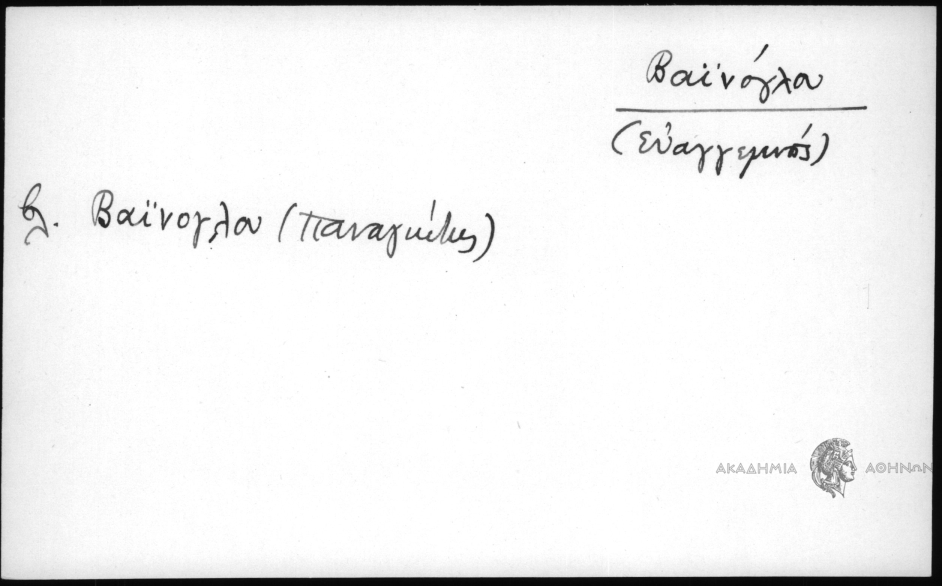 Βαϊνόγλου
(Εὐαγγεμινός)
βλ. Βαϊνογλου (Παναγιώτης)
ΑΚΑΔΗΜΙΑ ΑΘΗΝΩΝ